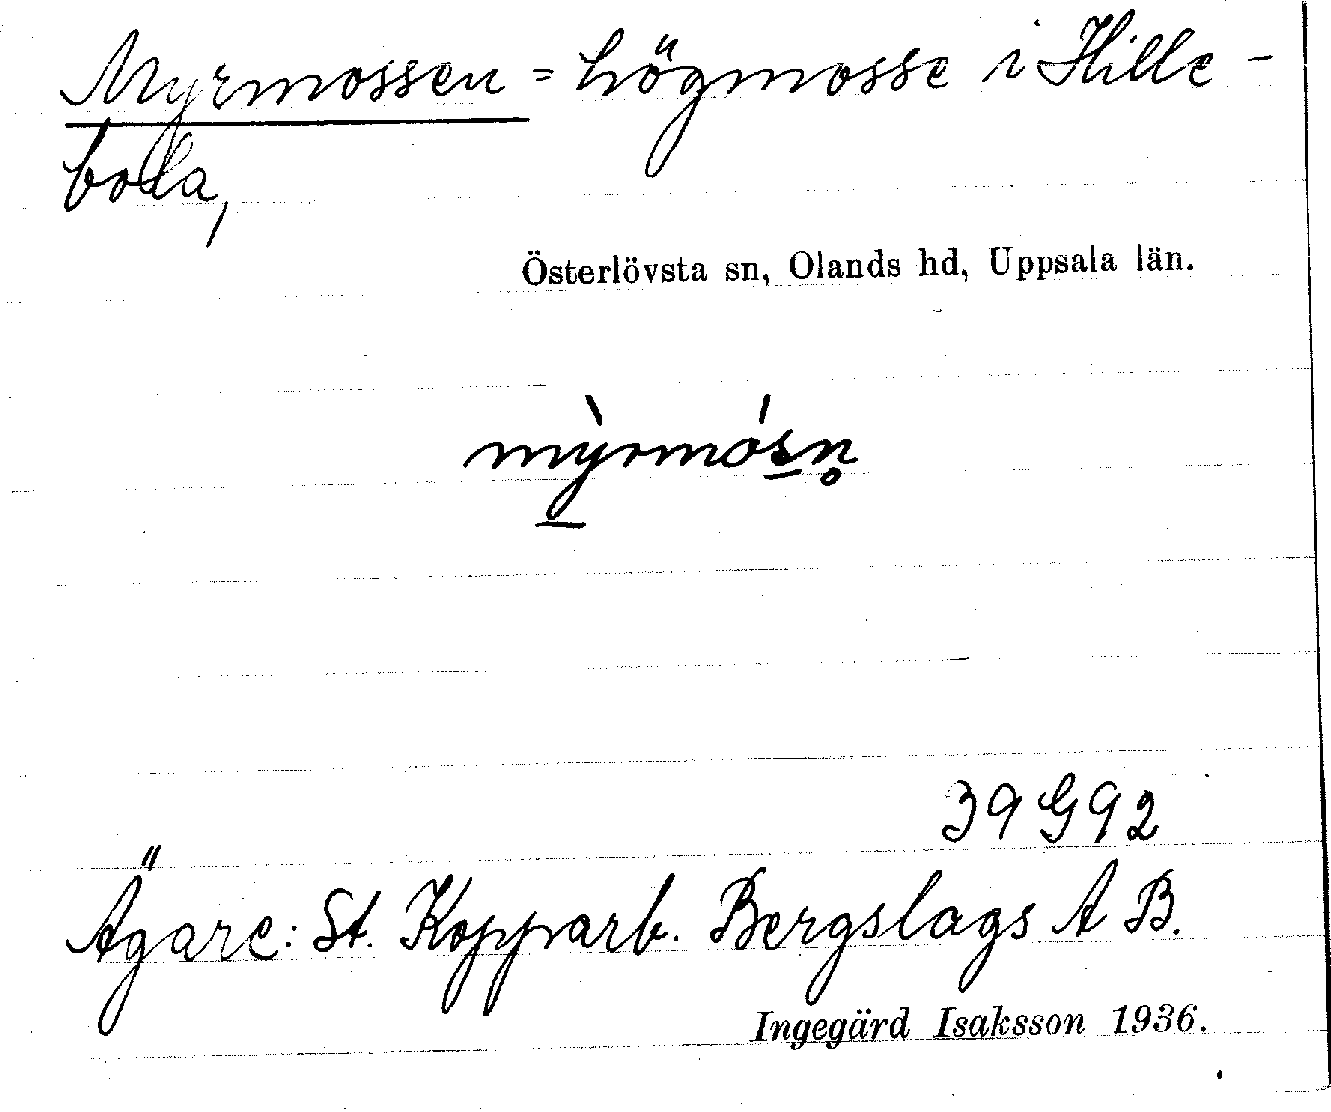 Myrmossen = högmosse i Hille-
boda,
Österlövsta sn, Olands hd, Uppsala län.
mỳ̲rmós̲n̥
39 G 92
Ägare: St. Kopparb. Bergslags A B.
Ingegärd Isaksson 1936.